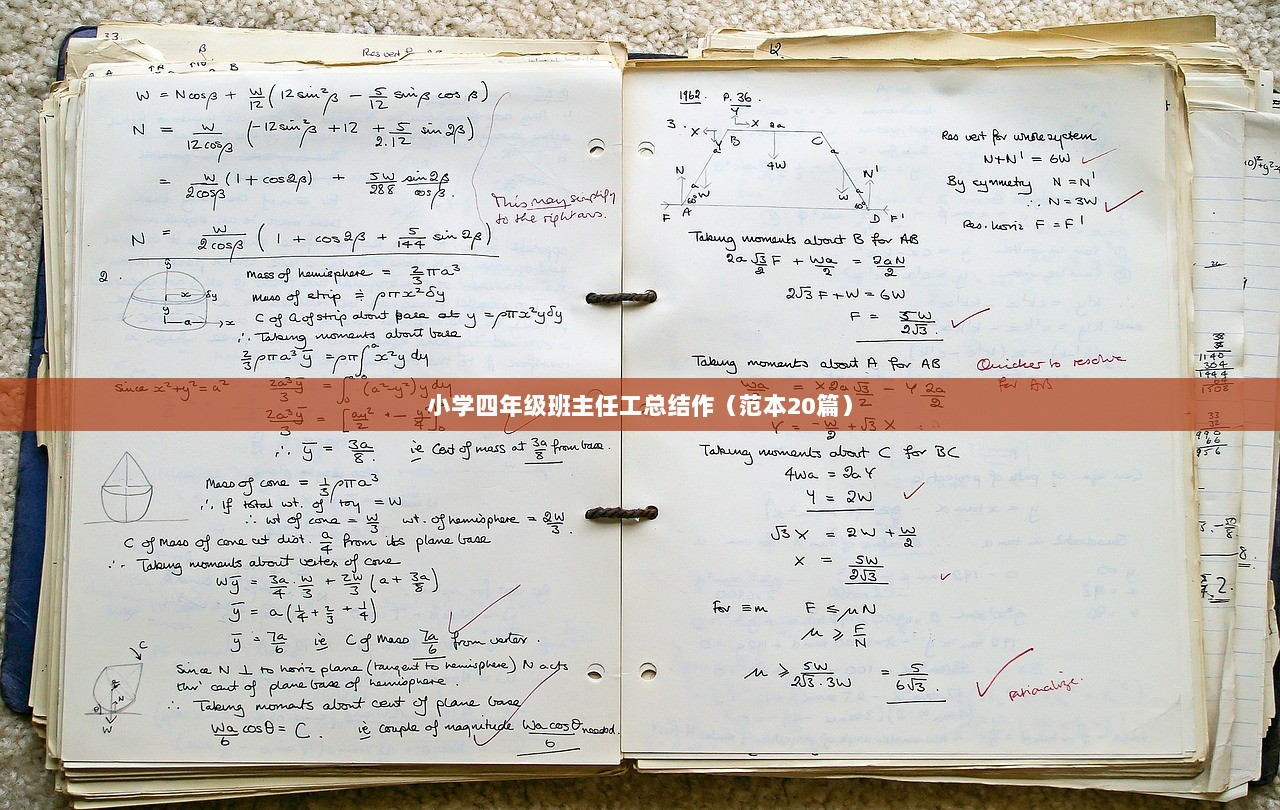 33.
Res vert
β
A B
W = Ncosβ + W/12 (12 sin²β − 5/12 sinβ cosβ)
N = W/12cosβ (−12sin²β + 12 + 5/2.12 sin2β)
= W/2cosβ (1 + cos2β) + 5W/288 sin2β/cosβ.
This may simplify
to the right ans.
N = W/2cosβ (1 + cos2β + 5/144 sin2β)
2.
Mass of hemisphere = 2/3 πa³
mass of strip ≑ ρπx²δy
C of G of strip about base at y = ρπx²yδy
∴ Taking moments about base
2/3 ρπa³ȳ = ρπ∫x²y dy
since x²+y² = a² 2a³ȳ/3 = ∫(a²−y²)y dy
∴ ȳ = 3a/8. ie Cent of mass at 3a/8 from base.
Mass of cone = 1/3 ρπa³
∴ If total wt. of toy = W
∴ wt of cone = W/3 wt. of hemisphere = 2W/3.
C of Mass of cone at dist. a/4 from its plane base
∴ Taking moments about vertex of cone
Wȳ = 3a/4 . W/3 + 2W/3 (a + 3a/8)
ȳ = a(1/4 + 2/3 + 1/4)
ȳ = 7a/6 ie C of Mass 7a/6 from vertex.
Since N ⊥ to horiz plane (tangent to hemisphere) N acts
thro' cent of plane base of hemisphere.
∴ Taking moments about cent of plane base
Wa/6 cosθ = C. ie couple of magnitude Wa cosθ/6 needed.
12.
1962. P. 36.
3.
X Y X 2a
B C
4W
N N'
W W
F A D F'
Res vert for whole system
N+N' = 6W
By symmetry N = N'
∴ N = 3W
Res. horiz F = F'
Taking moments about B for AB
2a √3/2 F + Wa/2 = 2aN/2
2√3 F + W = 6W
F = 5W/2√3.
Taking moments about A for AB
Quicker to resolve
for AB
Wa/2 = X2a√3/2 − Y 2a/2
Y = −W/2 + √3 X
小学四年级班主任工总结作（范本20篇）
Taking moments about C for BC
4Wa = 2aY
Y = 2W
√3 X = 2W + W/2
X = 5W/2√3
For ≡m F ≤ μN
μ ≥ F/N
μ ≥ 5W/2√3 . 3W = 5/6√3.
rationalize.